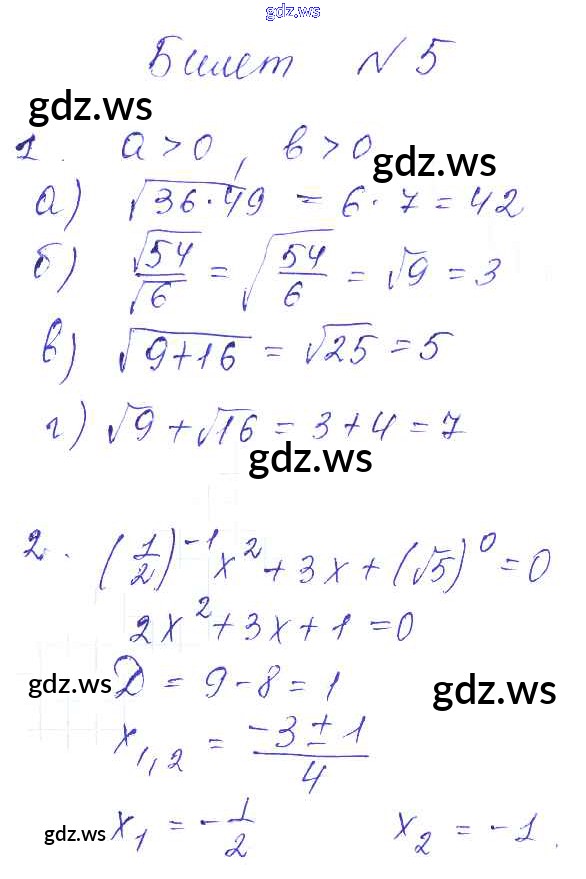 gdz.ws
Билет № 5
gdz.ws
1. a > 0, в > 0
gdz.ws
а) √36·49 = 6·7 = 42
б) √54/√6 = √(54/6) = √9 = 3
в) √9+16 = √25 = 5
г) √9 + √16 = 3 + 4 = 7
gdz.ws
2. (1/2)⁻¹ x² + 3x + (√5)⁰ = 0
2x² + 3x + 1 = 0
gdz.ws D = 9 - 8 = 1 gdz.ws
x₁,₂ = (-3 ± 1)/4
gdz.ws x₁ = -1/2 x₂ = -1.